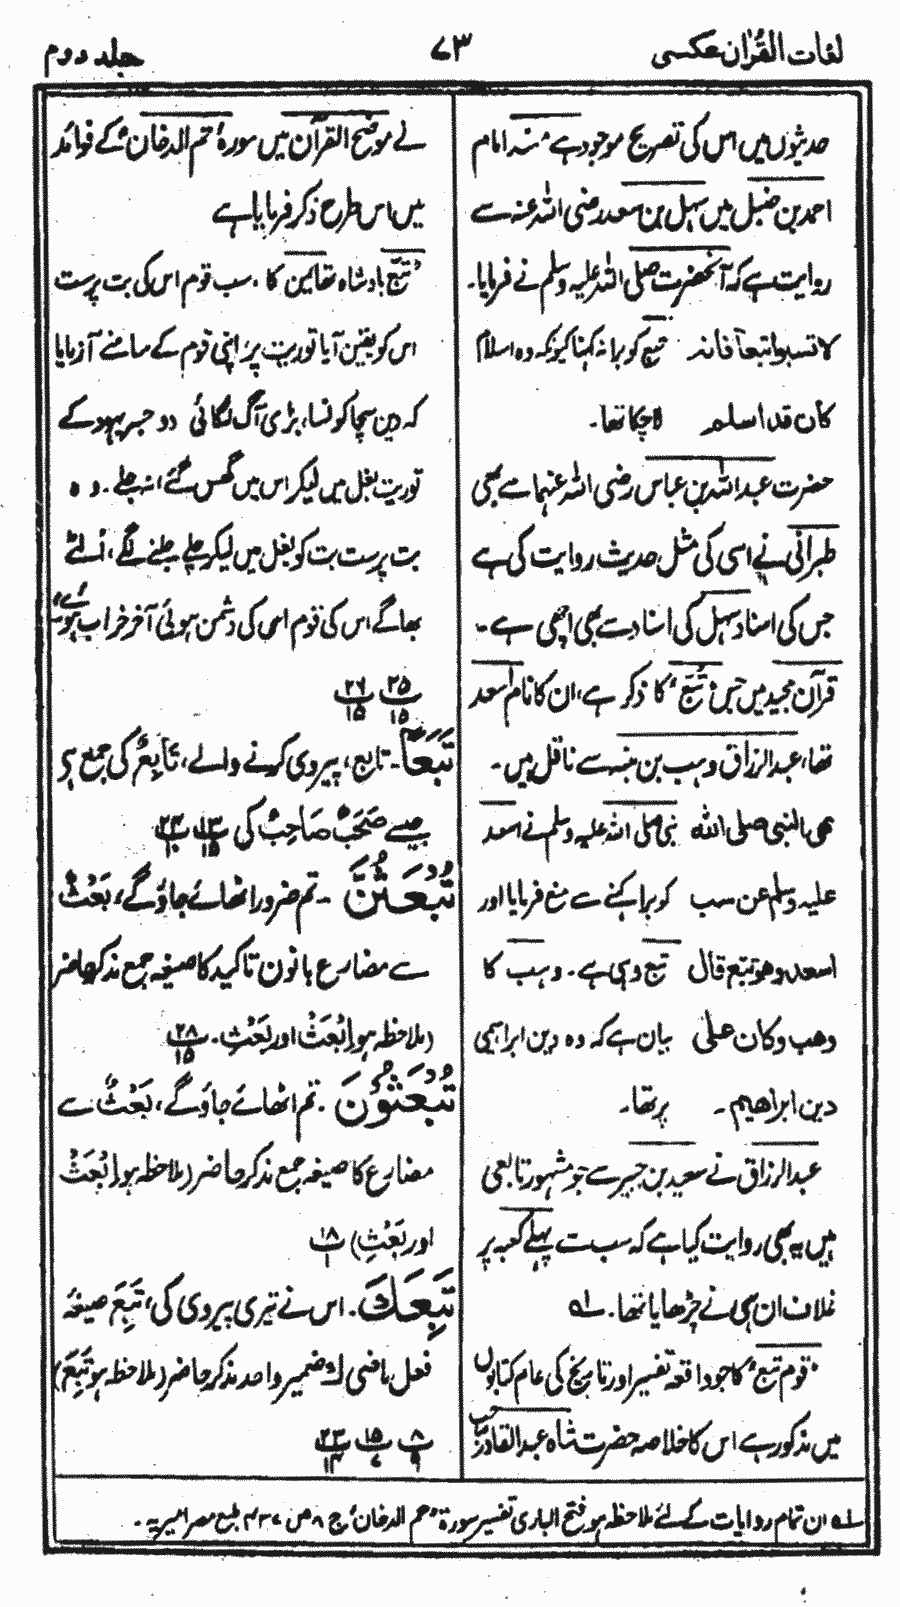 لغات القرآن عکسی
۷۳
جلد دوم
حدیثوں میں اس کی تصریح موجود ہے، مسند امام
احمد بن حنبل میں سہل بن سعد رضی اللہ عنہ سے
روایت ہے کہ آنحضرت صلی اللہ علیہ وسلم نے فرمایا۔
لا تسبوا تبعا فانہ تبع کو برا نہ کہنا کیونکہ وہ اسلام
کان قد اسلم لا چکا تھا۔
حضرت عبد اللہ بن عباس رضی اللہ عنہما سے بھی
طبرانی نے اسی کی مثل حدیث روایت کی ہے
جس کی اسناد سہل کی اسناد سے بھی اچھی ہے۔
قرآن مجید میں جس "تبع" کا ذکر ہے، ان کا نام اسعد
تھا، عبد الرزاق وہب بن منبہ سے ناقل ہیں۔
نھی النبی صلی اللہ نبی صلی اللہ علیہ وسلم نے اسعد
علیہ وسلم عن سب کو برا کہنے سے منع فرمایا اور
اسعد وھو تبع قال تبع وہی ہے۔ وہب کا
وھب وکان علی بیان ہے کہ وہ دین ابراہیمی
دین ابراھیم۔ پر تھا۔
عبد الرزاق نے سعید بن جبیر سے جو مشہور تابعی
ہیں یہ بھی روایت کیا ہے کہ سب سے پہلے کعبہ پر
غلاف ان ہی نے چڑھایا تھا۔ لہ
"قوم تبع" کا جو واقعہ تفسیر اور تاریخ کی عام کتابوں
میں مذکور ہے اس کا خلاصہ حضرت شاہ عبد القادر صاحب
نے موضح القرآن میں سورۂ حم الدخان کے فوائد
میں اس طرح ذکر فرمایا ہے
"تبع بادشاہ تھا یمن کا، سب قوم اس کی بت پرست
اس کو یقین آیا توریت پر، اپنی قوم کے سامنے آزمایا
کہ دین سچا کونسا، بڑی آگ لگائی دو حبر یہود کے
توریت بغل میں لیکر اس میں گھس گئے، نہ جلے۔ وہ
بت پرست بت کو بغل میں لیکر چلے جلنے لگے، اُلٹے
بھاگے اس کی قوم اسی کی دشمن ہوئی آخر خراب ہوئے"
۲۵/۱۵ ۲۶/۱۵
تَبَعًا۔ تابع، پیروی کرنے والے، تَابِعٌ کی جمع ہے
جیسے صَحَبٌ صَاحِبٌ کی ۱۳/۱۵ ۲۴/۱۰
تُبْعَثُنَّ۔ تم ضرور اٹھائے جاؤ گے، بَعْثٌ
سے مضارع بانون تاکید کا صیغہ جمع مذکر حاضر
(ملاحظہ ہو اِنْبَعَثَ اور بَعْثِ)۔ ۲۸/۱۵
تُبْعَثُوْنَ۔ تم اٹھائے جاؤ گے، بَعْثٌ سے
مضارع کا صیغہ جمع مذکر حاضر (ملاحظہ ہو اِنْبَعَثَ
اور بَعْثِ) ۱۸/۱
تَبِعَكَ۔ اس نے تیری پیروی کی، تَبِعَ صیغۂ
فعل ماضی ك ضمیر واحد مذکر حاضر (ملاحظہ ہو تَبِعَ)
۸/۹ ۱۵/۷ ۲۳/۱۴
لہ ان تمام روایات کے لئے ملاحظہ ہو فتح الباری تفسیر سورۃ "حم الدخان" ج ۸ ص ۴۳۷ طبع مصر امیریہ۔